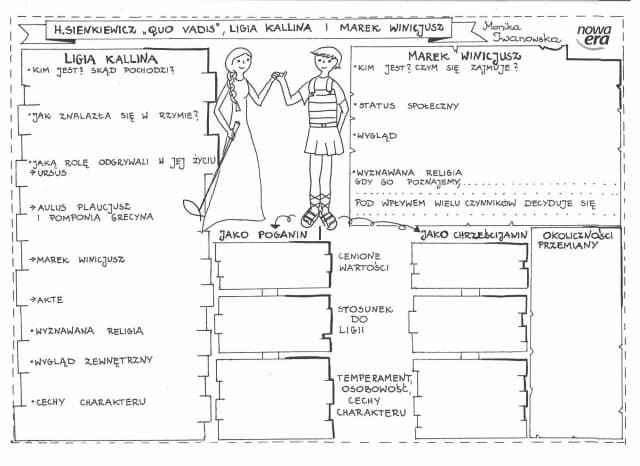 H.SIENKIEWICZ „QUO VADIS", LIGIA KALLINA I MAREK WINICJUSZ
Monika
Iwanowska
nowa
era
LIGIA KALLINA
•KIM JEST? SKĄD POCHODZI?
•JAK ZNALAZŁA SIĘ W RZYMIE?
•JAKĄ ROLĘ ODGRYWALI W JEJ ŻYCIU
→URSUS
→AULUS PLAUCJUSZ
I POMPONIA GRECYNA
→MAREK WINICJUSZ
→AKTE
•WYZNAWANA RELIGIA
•WYGLĄD ZEWNĘTRZNY
•CECHY CHARAKTERU
MAREK WINICJUSZ
•KIM JEST? CZYM SIĘ ZAJMUJE?
•STATUS SPOŁECZNY
•WYGLĄD
•WYZNAWANA RELIGIA
GDY GO POZNAJEMY
POD WPŁYWEM WIELU CZYNNIKÓW DECYDUJE SIĘ
JAKO POGANIN
JAKO CHRZEŚCIJANIN
OKOLICZNOŚCI
PRZEMIANY
CENIONE
WARTOŚCI
STOSUNEK
DO
LIGII
TEMPERAMENT,
OSOBOWOŚĆ,
CECHY
CHARAKTERU